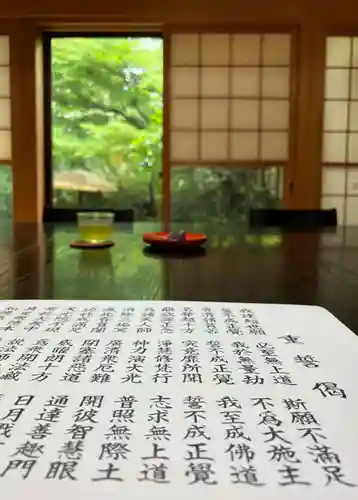 重誓偈
我建超世願 必至無上道 斯願不滿足
誓不成正覺 我於無量劫 不為大施主
普濟諸貧苦 誓不成正覺 我至成佛道
名聲超十方 究竟靡所聞 誓不成正覺
離欲深正念 淨慧修梵行 志求無上道
為諸天人師 神力演大光 普照無際土
消除三垢冥 廣濟衆厄難 開彼智慧眼
滅此昏盲闇 閉塞諸惡道 通達善趣門
功祚成滿足 威曜朗十方 日月戢
為衆開法藏
說法師